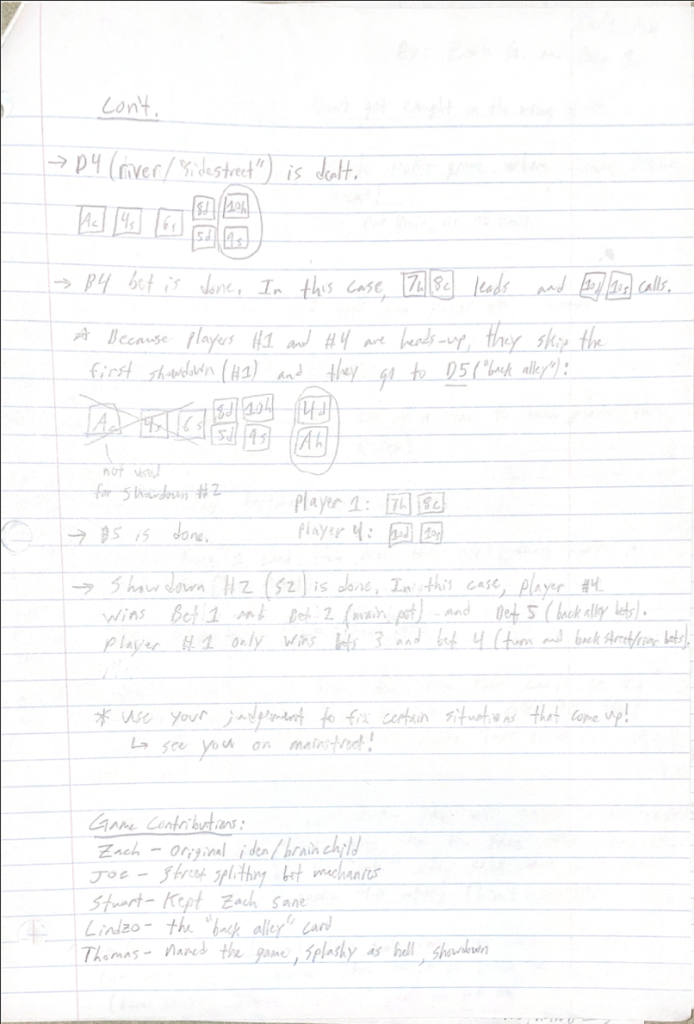 Con't.
→ D4 (river/"sidestreet") is dealt.
8d 10h
Ac 4s 6s
5d 9s
→ B4 bet is done. In this case, 7h 8c leads and 10d 10s calls.
* Because players #1 and #4 are heads-up, they skip the
first showdown (#1) and they go to D5 ("back alley"):
8d 10h 4d
Ac 4s 6s
5d 9s Ah
not used
for showdown #2
player 1: 7h 8c
→ B5 is done. player 4: 10d 10s
→ Showdown #2 (S2) is done. In this case, player #4
wins Bet 1 and Bet 2 (main pot) and Bet 5 (back alley bets).
player #1 only wins bets 3 and bet 4 (turn and back street/river bets).
* Use your judgement to fix certain situations that come up!
↳ see you on mainstreet!
Game Contributions:
Zach - Original idea/brainchild
Joe - Street splitting bet mechanics
Stuart - Kept Zach sane
Lindzo - the "back alley" card
Thomas - Named the game, splashy as hell, showdown